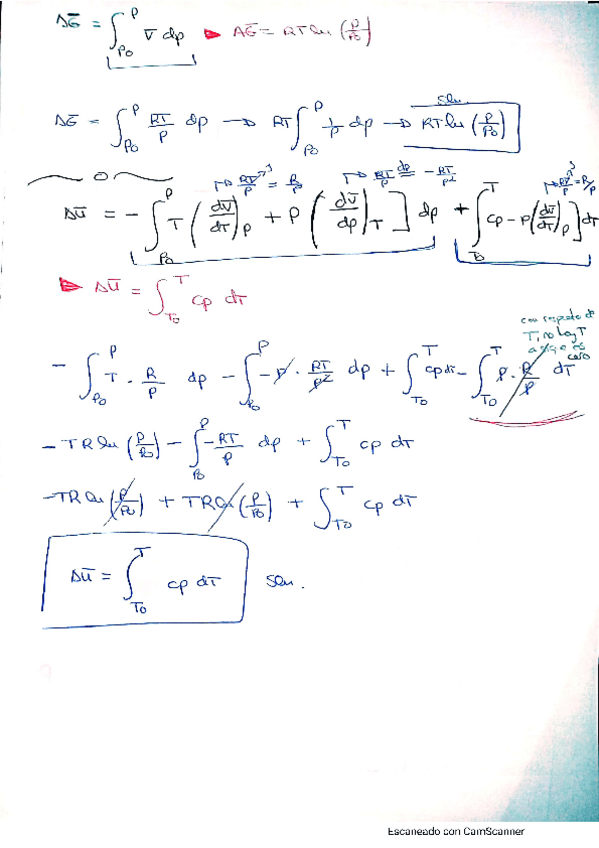 ΔG̅ = ∫_{P₀}^{P} V̅ dp ▶ ΔG̅ = RT ln (P/P₀)
ΔG̅ = ∫_{P₀}^{P} RT/P dp → RT ∫_{P₀}^{P} 1/P dp → RT ln (P/P₀) Sln.
→ RT/P = R/P → RT/P dp = -RT/P² → RT/P = R/P
ΔU̅ = - ∫_{P₀}^{P} T (dv̅/dT)_P + P (dv̅/dp)_T ] dp + ∫_{T₀}^{T} cp - P (dv̅/dT)_P ] dT
▶ ΔU̅ = ∫_{T₀}^{T} cp dT
con respecto a
T, no hay T
- ∫_{P₀}^{P} T · R/P dp - ∫_{P₀}^{P} -P · RT/P² dp + ∫_{T₀}^{T} cp dT - ∫_{T₀}^{T} P · R/P dT
cero
- TR ln (P/P₀) - ∫_{P₀}^{P} -RT/P dp + ∫_{T₀}^{T} cp dT
-TR ln (P/P₀) + TR ln (P/P₀) + ∫_{T₀}^{T} cp dT
ΔU̅ = ∫_{T₀}^{T} cp dT Sln.
Escaneado con CamScanner